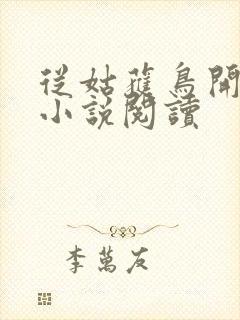 從姑蘿鳥開
小說閱讀
李萬友